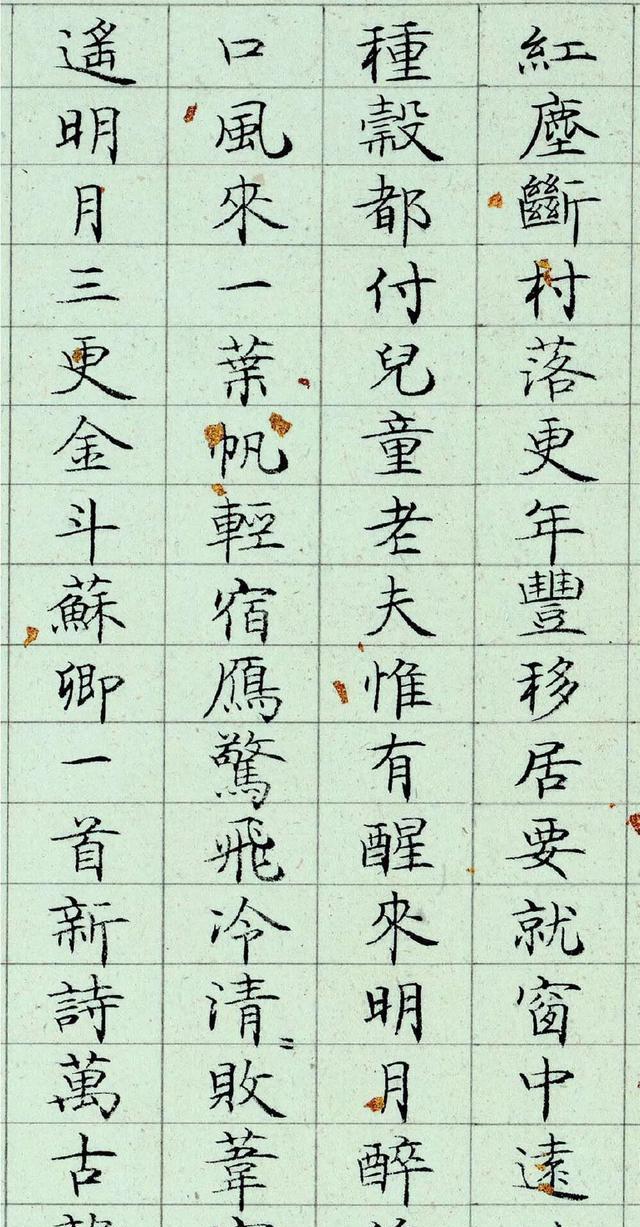 紅塵斷村落更年豐移居要就窗中遠
種穀都付兒童老夫惟有醒來明月醉
口風來一葉帆輕宿鴈驚飛冷清〻敗葦
遙明月三更金斗蘇卿一首新詩萬古